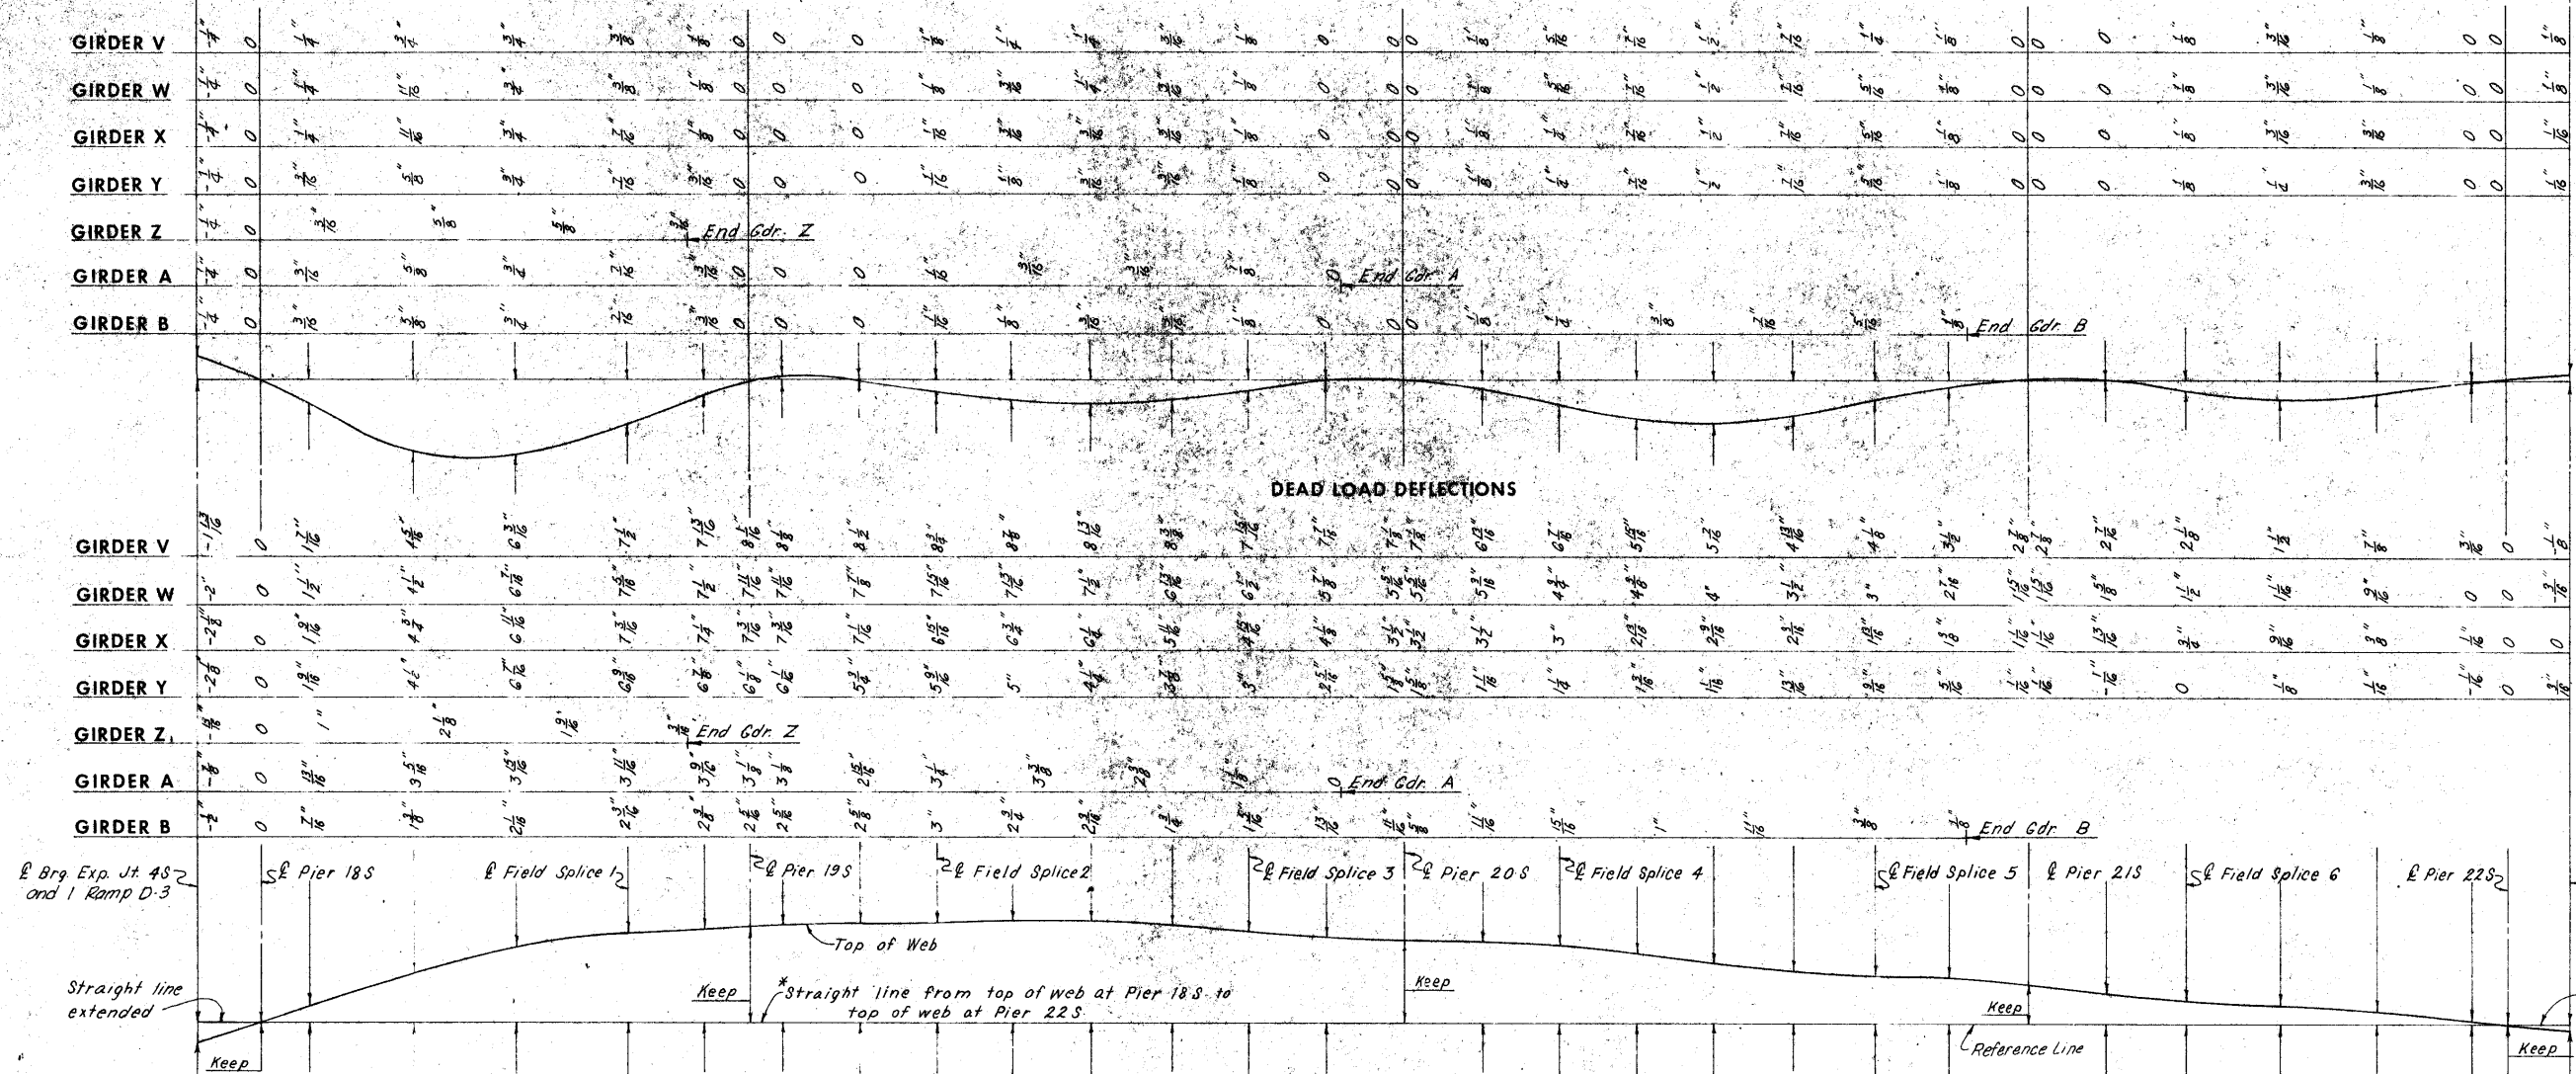 GIRDER V -1/4" 0 1/4" 3/4" 3/4" 3/8" 1/8" 0 0 0 1/8" 1/4" 1/4" 3/16" 1/8" 0 0 0 1/8" 5/16" 7/16" 1/2" 7/16" 1/4" 1/8" 0 0 0 1/8" 3/16" 1/8" 0 0 1/8"
GIRDER W -1/4" 0 1/4" 11/16" 3/4" 3/8" 1/8" 0 0 0 1/8" 3/16" 1/4" 3/16" 1/8" 0 0 0 1/8" 5/16" 7/16" 1/2" 7/16" 5/16" 1/8" 0 0 0 1/8" 3/16" 1/8" 0 0 1/8"
GIRDER X -1/4" 0 1/4" 11/16" 3/4" 7/16" 1/8" 0 0 0 1/16" 3/16" 3/16" 3/16" 1/8" 0 0 0 1/8" 1/4" 7/16" 1/2" 7/16" 5/16" 1/8" 0 0 0 1/8" 3/16" 3/16" 0 0 1/16"
GIRDER Y -1/4" 0 3/16" 5/8" 3/4" 7/16" 3/16" 0 0 0 1/16" 1/8" 3/16" 3/16" 1/8" 0 0 0 1/8" 1/4" 7/16" 1/2" 7/16" 5/16" 1/8" 0 0 0 1/8" 1/4" 3/16" 0 0 1/16"
GIRDER Z -1/4" 0 3/16" 5/8" 5/8" 3/16" End Gdr. Z
GIRDER A -1/4" 0 3/16" 5/8" 3/4" 7/16" 3/16" 0 0 0 1/16" 3/16" 3/16" 1/8" 0 End Gdr. A
GIRDER B -1/4" 0 3/16" 5/8" 3/4" 7/16" 3/16" 0 0 0 1/16" 1/8" 3/16" 3/16" 1/8" 0 0 0 1/8" 1/4" 3/8" 7/16" 5/16" 1/8" End Gdr. B
DEAD LOAD DEFLECTIONS
GIRDER V -1 13/16" 0 1 7/16" 4 5/16" 6 3/16" 7 1/2" 7 13/16" 8 1/16" 8 1/8" 8 1/2" 8 3/4" 8 7/8" 8 13/16" 8 3/8" 7 15/16" 7 7/8" 7 7/8" 6 13/16" 6 7/16" 5 15/16" 4 13/16" 4 1/8" 3 1/2" 2 7/8" 2 7/8" 2 7/16" 2 1/8" 1 1/2" 7/8" 3/16" 0 -1/8"
GIRDER W -2" 0 1 1/2" 4 1/2" 6 7/16" 7 5/16" 7 1/2" 7 11/16" 7 11/16" 7 7/8" 7 15/16" 7 13/16" 7 1/2" 6 13/16" 6 1/2" 5 7/8" 5 5/16" 5 5/16" 5 3/16" 4 3/4" 4 3/8" 4" 3 1/2" 3" 2 7/16" 1 15/16" 1 15/16" 1 5/8" 1 1/2" 1 1/16" 9/16" 0 0 -3/16"
GIRDER X -2 1/8" 0 1 9/16" 4 3/4" 6 11/16" 7 3/16" 7 1/4" 7 3/16" 7 3/16" 7 1/16" 6 15/16" 6 3/4" 6 1/4" 5 11/16" 4 15/16" 4 1/8" 3 1/2" 3 1/2" 3 1/2" 3" 2 13/16" 2 9/16" 2 3/16" 1 13/16" 1 3/8" 1 1/16" 1 1/16" 13/16" 3/4" 9/16" 3/8" 1/16" 0 0
GIRDER Y -2 1/8" 0 1 9/16" 6 7/16" 6 9/16" 6 7/8" 6 1/8" 6 1/16" 5 3/4" 5 9/16" 5" 4 1/4" 3 7/8" 3" 2 5/16" 1 5/8" 1 5/8" 1 1/16" 13/16" 9/16" 5/16" 1/16" 1/16" -1/16" 0 1/8" 1/16" -1/16" 0 3/16"
GIRDER Z 0 1" 2 1/8" 1 9/16" 3/16" End Gdr. Z
GIRDER A -7/8" 0 13/16" 3 5/16" 3 15/16" 3 11/16" 3 9/16" 3 1/8" 3 1/8" 2 15/16" 3 1/4" 3 3/8" 2 3/8" 0 End Gdr. A
GIRDER B -1/2" 0 7/16" 1 3/8" 2 1/16" 2 3/16" 2 3/8" 2 5/16" 2 5/16" 2 5/8" 3" 2 3/4" 2 3/16" 1 3/4" 1 5/16" 13/16" 11/16" 5/8" 11/16" 15/16" 1" 11/16" 3/8" 1/8" End Gdr. B
℄ Brg. Exp. Jt. 4S and 1 Ramp D-3
℄ Pier 18S
℄ Field Splice 1
℄ Pier 19S
℄ Field Splice 2
℄ Field Splice 3
℄ Pier 20S
℄ Field Splice 4
℄ Field Splice 5
℄ Pier 21S
℄ Field Splice 6
℄ Pier 22S
Top of Web
Straight line
extended
Keep
*Straight line from top of web at Pier 18S to
top of web at Pier 22S
Keep
Keep
Keep
Reference Line
Keep